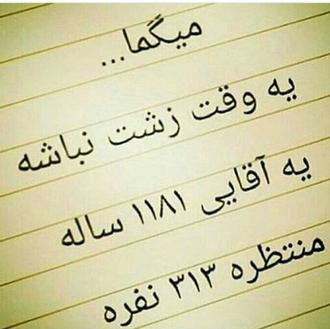 میگما...
یه وقت زشت نباشه
یه آقایی ۱۱۸۱ ساله
منتظره ۳۱۳ نفره